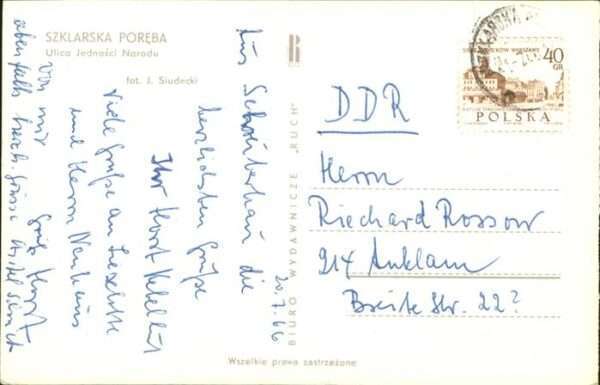 SZKLARSKA PORĘBA
Ulica Jedności Narodu
fot. J. Siudecki
20.7.66
Aus Schreiberhau die
herzlichsten Grüße
Ihr Horst
Viele Grüße an Liselotte
und Herrn Neuhaus
von mir
Gruß Horst
ebenfalls herzl. Grüsse
BIURO WYDAWNICZE „RUCH”
SZKLARSKA
40
GR
POLSKA
DDR
Herrn
Riechard Rossow
214 Anklam
Breite Str. 22?
Wszelkie prawa zastrzeżone